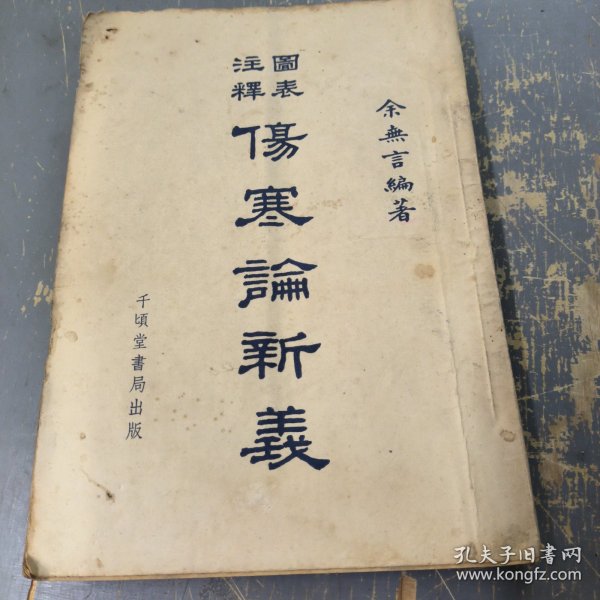 余無言編著
圖表
注釋
傷寒論新義
千頃堂書局出版
孔夫子旧書网
www.kongfz.com